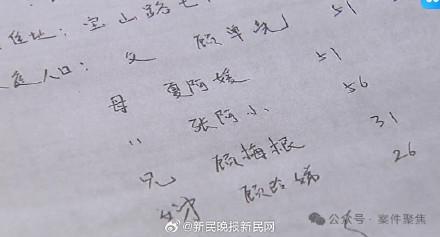 住址：宝山路七
家庭人口：父 顾 51
母 夏阿媛 51
〃 张阿小 56
兄 顾梅根 31
顾 26
@新民晚报新民网
公众号·案件聚焦